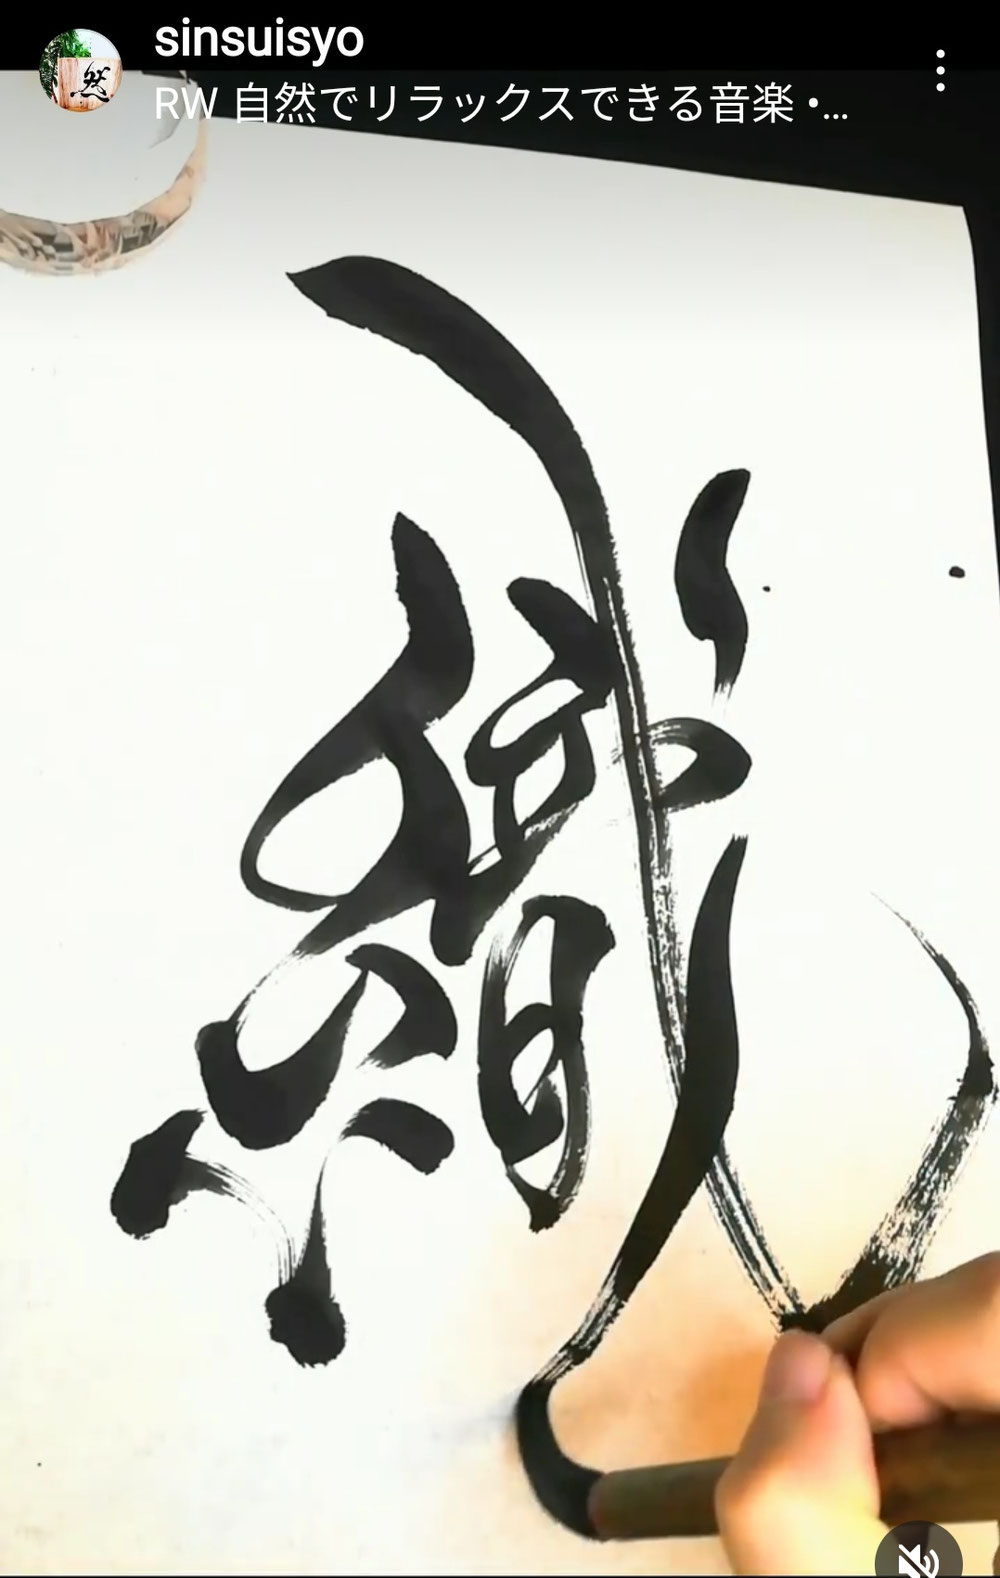 sinsuisyo
RW 自然でリラックスできる音楽 •...
然
織